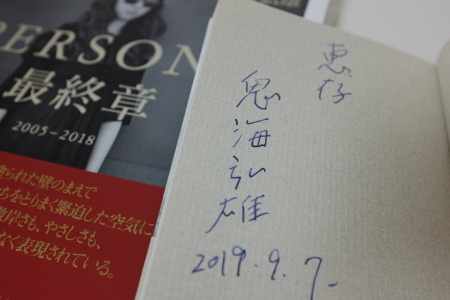 PERSON
最終章
2005-2018
塗られた壁のまえで
ちをとりまく緊迫した空気に
彼岸さも、やさしさも、
なく表現されている。
恵存
鬼海弘雄
2019.9.7.